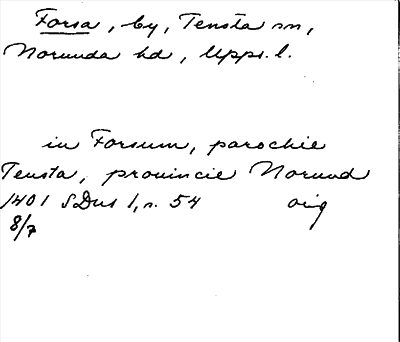 Forsa, by, Tensta sn,
Norunda hd, Upps. l.
in Forsum, parochie
Tensta, prouincie Norund
1401 SDns 1, s. 54 orig
8/7